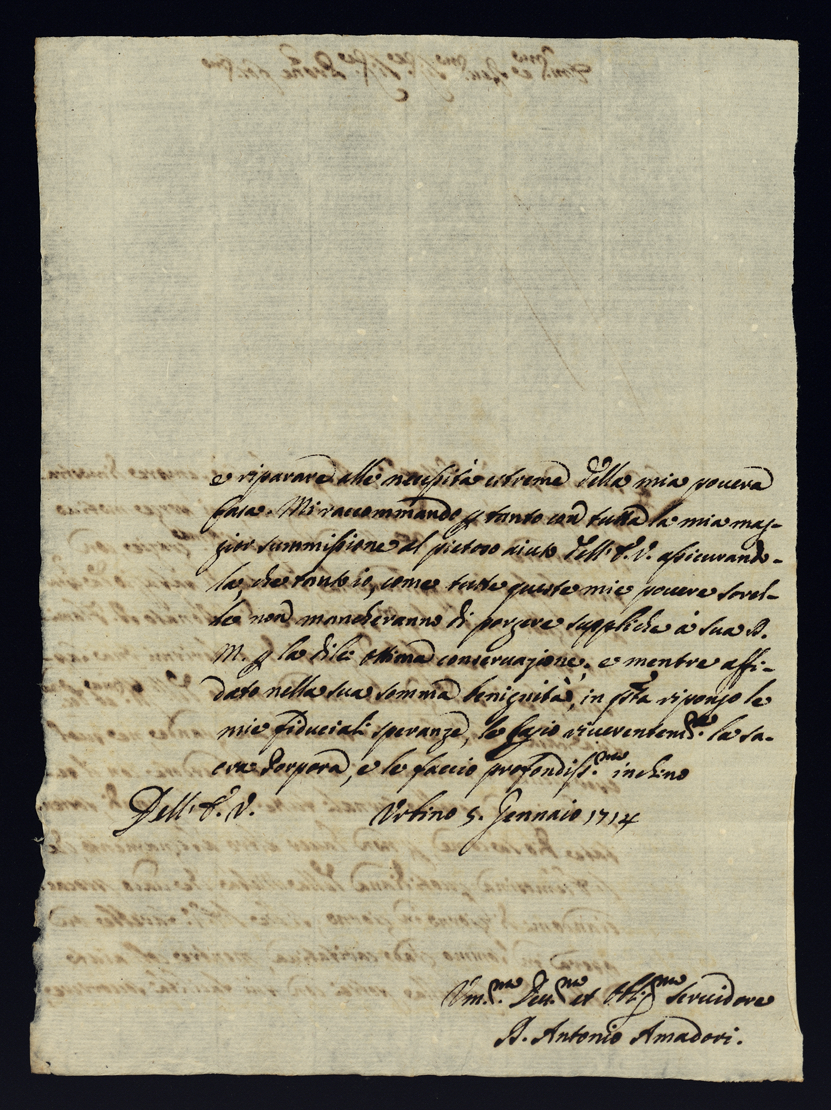 e riparare alle necessità estreme della mia povera
Casa. Mi raccommando p tanto con tutta la mia mag-
gior summissione al pietoso aiuto dell'E.V. assicurando-
la, che tanto io, come tutte queste mie povere sorel-
le non mancheranno di porgere suppliche à sua D.
M. p la di lei ottima conservazione. e mentre affi-
dato nella sua somma benignità, in q.sta ripongo le
mie fiduciali speranze, le bacio riverentem.te la sa-
cra Porpora, e le faccio profondiss.mo inchino
Dell'E.V. Urbino 5. Gennaio 1714
Um.mo Dev.mo et Obl.mo Servidore
Antonio Amadori.